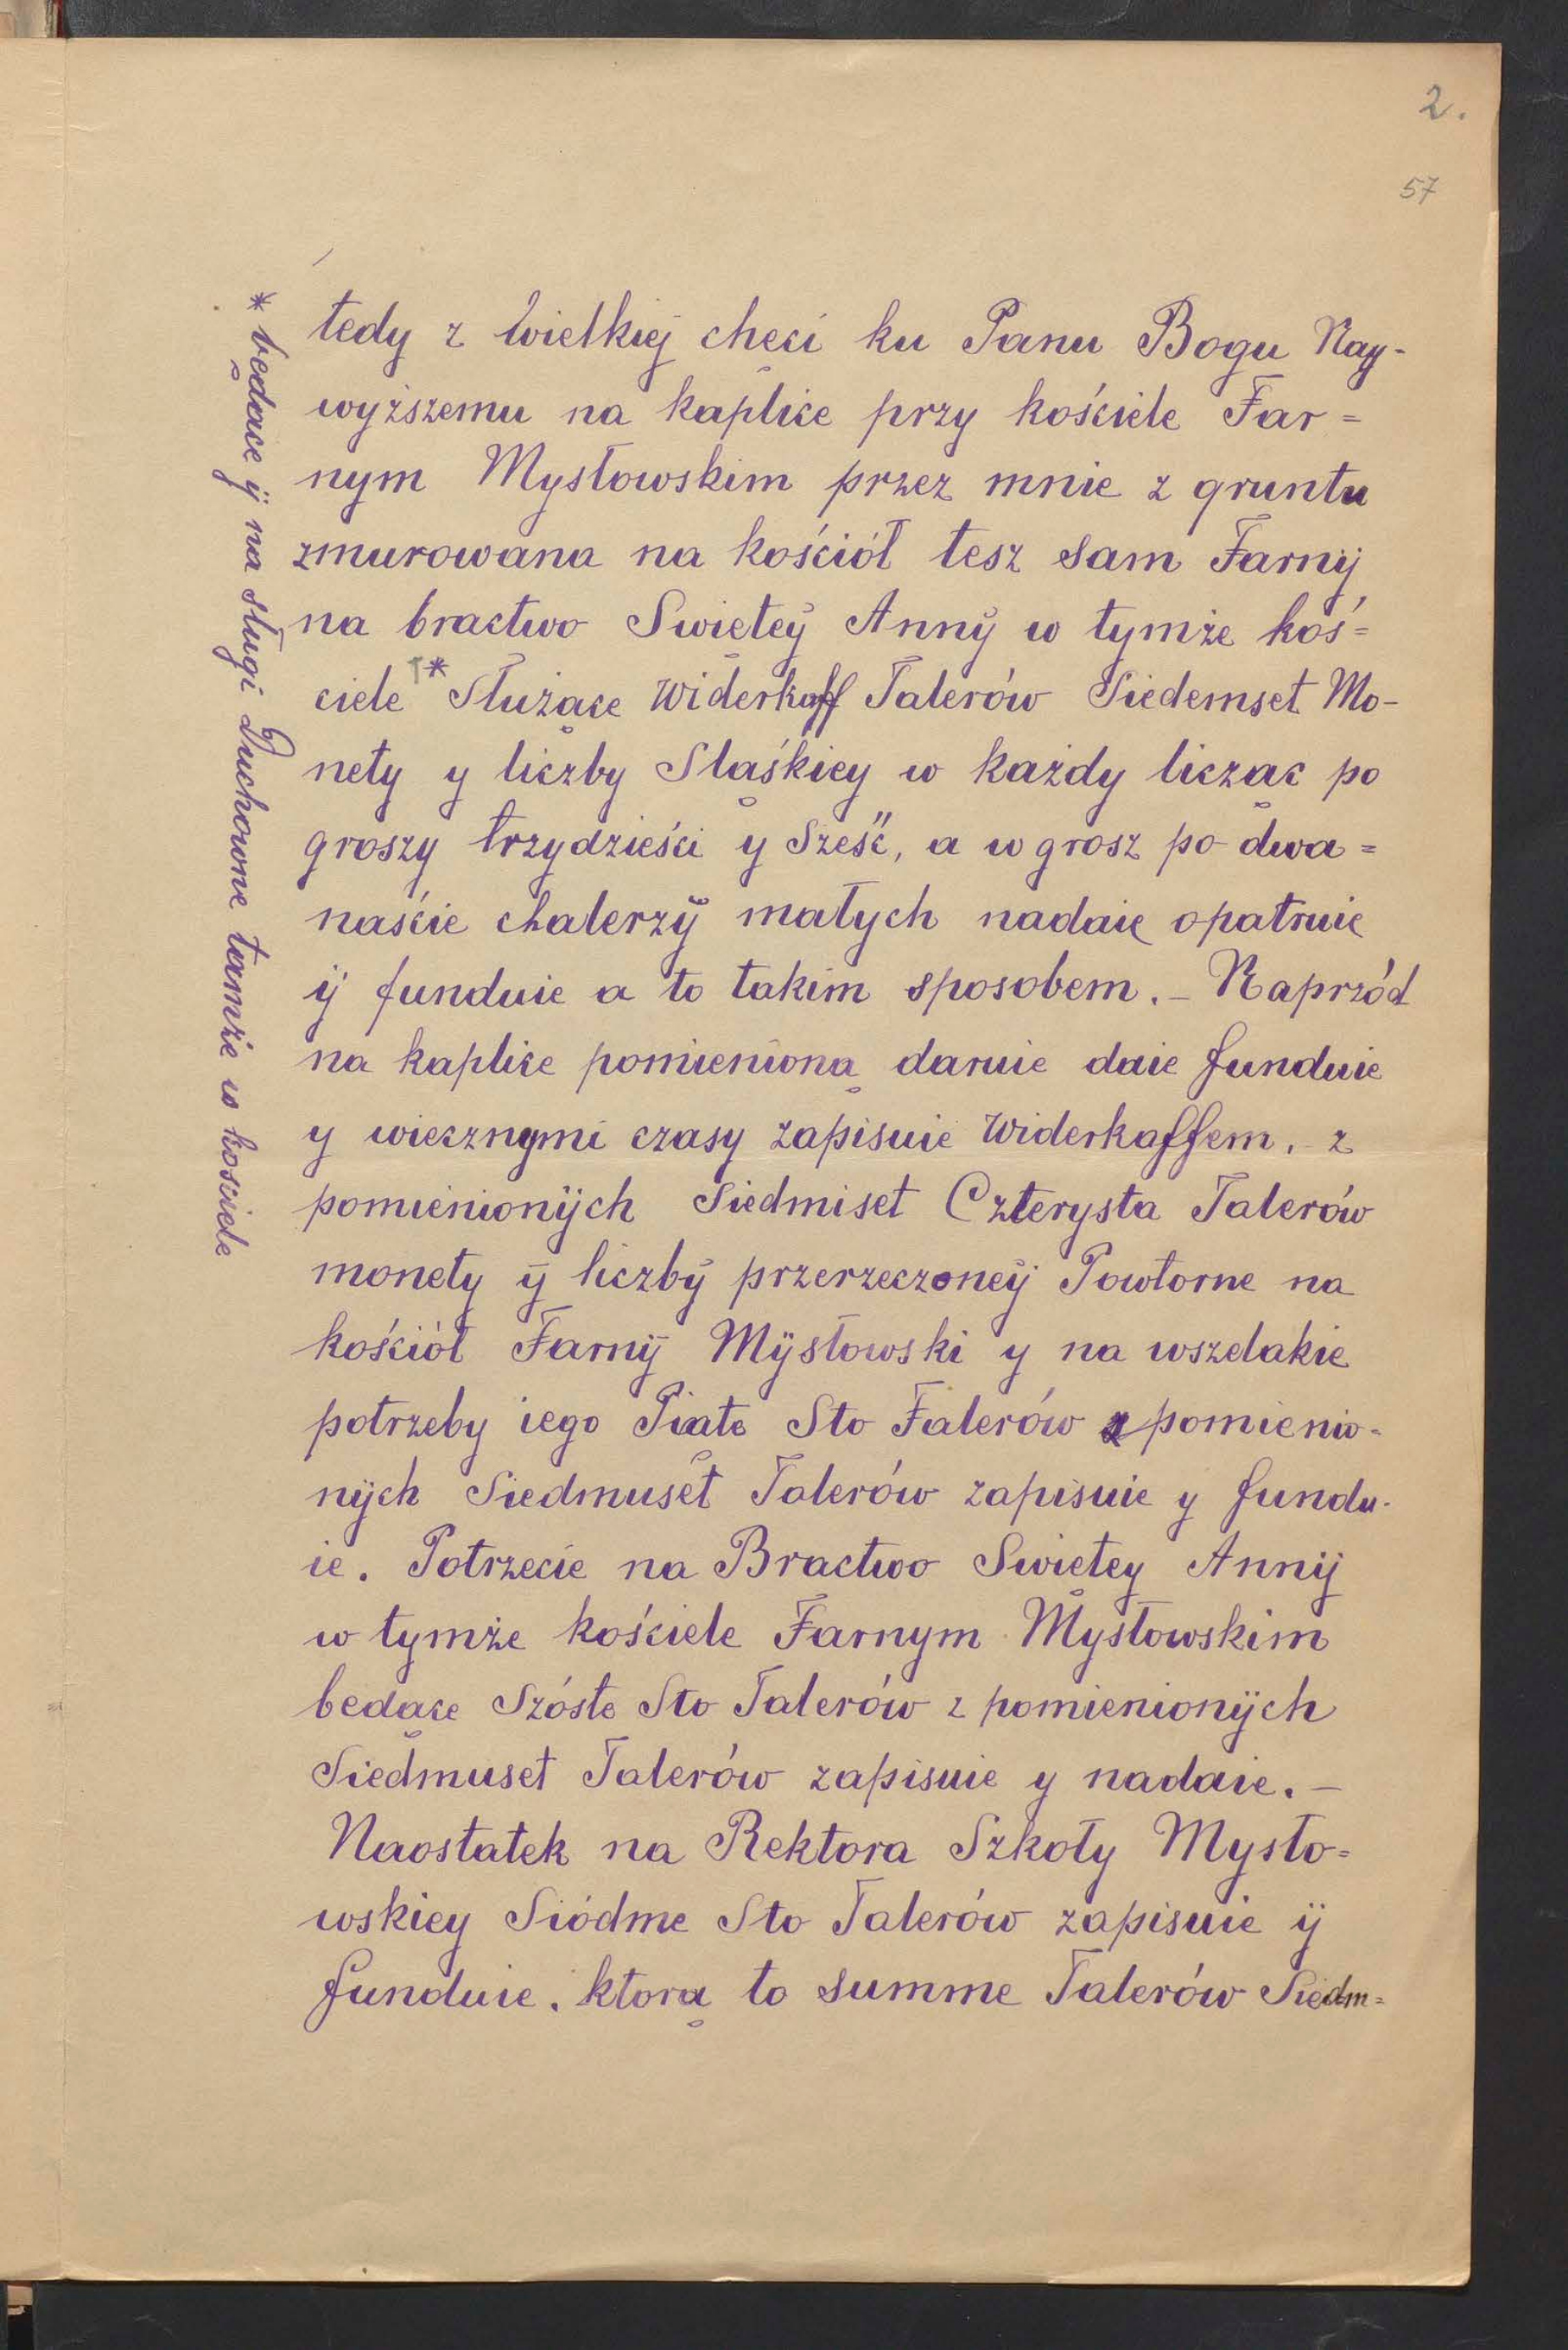 2.
57
tedy z wielkiej chęci ku Panu Bogu Nay-
wyższemu na kaplice przy kościele Far=
nym Mysłowskim przez mnie z gruntu
zmurowana na kościół tesz sam Farnÿ
na bractwo Swięteÿ Annÿ w tymże koś=
ciele * Służące Widerkaff Talerów Siedemset Mo-
nety y liczby Sląśkiey w każdy licząc po
groszy trzydzieści y Sześć, a w grosz po dwa=
naście chalerzÿ małych nadaie opatruie
ÿ funduie a to takim sposobem. – Naprzód
na kaplice pomienioną daruie daie funduie
y wiecznymi czasy zapisuie Widerkaffem. z
pomienionÿch Siedmiset Czterysta Talerów
monety ÿ liczbÿ przerzeczoneÿ Powtorne na
kościół Farnÿ Mÿsłowski y na wszelakie
potrzeby iego Piąte Sto Talerów z pomienio-
nÿch Siedmuset Talerów zapisuie y fundu-
ie. Potrzecie na Bractwo Swiętey Annÿ
w tymże kościele Farnym Mysłowskim
bedące Szóste Sto Talerów z pomienionÿch
Siedmuset Talerów zapisuie y nadaie. –
Naostatek na Rektora Szkoły Mysło=
wskiey Siódme Sto Talerów zapisuie ÿ
funduie. ktorą to summe Talerów Siedm=
* będace ÿ na sługi Duchowne tamże w kosciele